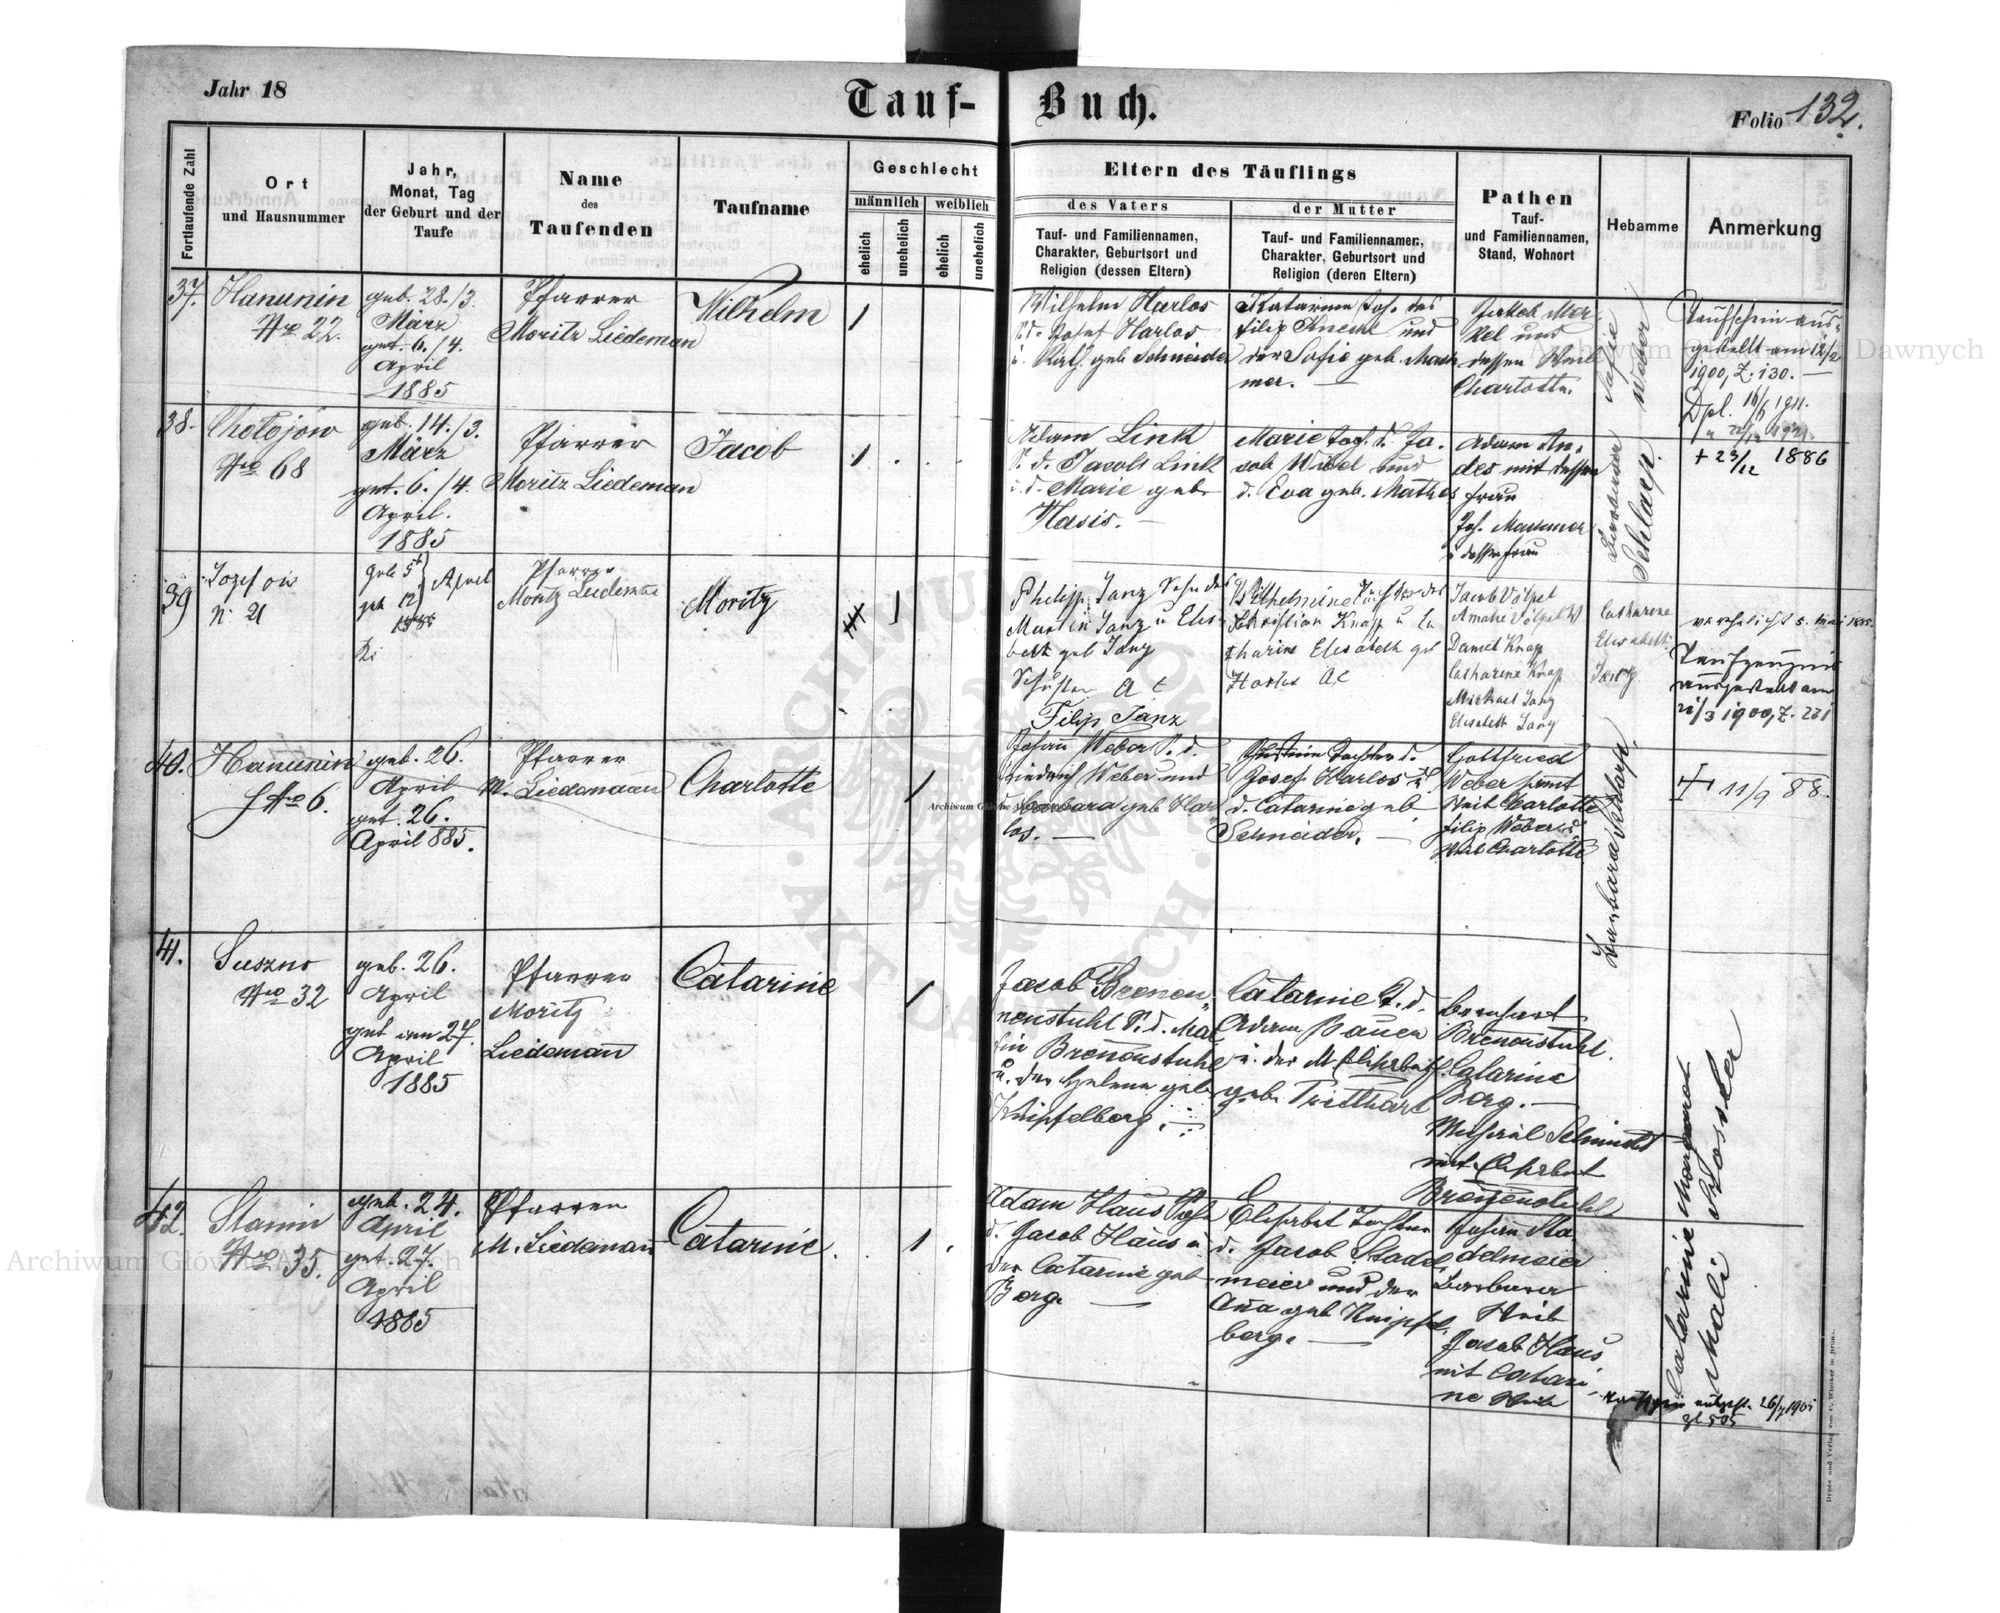 Jahr 18
Tauf-Buch.
Folio 132.
Fortlaufende Zahl
Ort
und Hausnummer
Jahr,
Monat, Tag
der Geburt und der
Taufe
Name
des
Taufenden
Taufname
Geschlecht
männlich
weiblich
ehelich
unehelich
ehelich
unehelich
Eltern des Täuflings
des Vaters
Tauf- und Familiennamen,
Charakter, Geburtsort und
Religion (dessen Eltern)
der Mutter
Tauf- und Familiennamen,
Charakter, Geburtsort und
Religion (deren Eltern)
Pathen
Tauf-
und Familiennamen,
Stand, Wohnort
Hebamme
Anmerkung
37.
Hanunin
Nro 22.
geb. 28./3.
März
get. 6./4.
April
1885
Pfarrer
Moritz Liedeman
Wilhelm
1
Wilhelm Harlos
S. d. Josef Harlos
u. Kath. geb Schneider
Katarine Toch. des
Filip Knecht und
der Sofie geb.
mer.
Jakob Mer
kel und
dessen Weib
Charlotte.
Sofie
Weber
Taufschein aus-
gestellt am 12/2
1900, Z. 130.
Dpl. 16/ 1911.
38.
Chołojów
Nro 68
geb. 14./3.
März
get. 6./4.
April.
1885
Pfarrer
Moritz Liedeman
Jacob
1
Adam Link
S. d. Jacob Link
u. d. Marie geb
Hasis.
Marie Toch. d. Ja-
cob Wibel und
d. Eva geb. Mathes
Adam An-
des mit dessen
Frau
Joh.
u dessen Frau
Schlarp.
+ 23/12 1886
39
Jozefow
N. 21
geb 5t
get 12
April
1885
Pfarrer
Moritz Liedemann
Moritz
1
Philipp Janz Sohn des
Martin Janz u Elis-
beth geb Janz
Schuster A C
Filip Janz
Wilhelmine Tochter des
Christian Knap u Ca
tharine Elisabeth geb
Harlos A.C
Jacob Völpel
Amalie Völpel
Daniel Knap
Catharine Knap
Michael Janz
Elisabeth Janz
Catharine
Elisabeth
Janz
verehelicht 5. Mai 1885.
Taufzeugnis
ausgestellt am
21/3 1900, Z. 221
40.
Hanunin
Nro 6.
geb. 26.
April
get. 26.
April 885.
Pfarrer
M. Liedemann
Charlotte
1
Johann Weber S. d.
Friedrich Weber und
d. Barbara geb Har
los.
Tochter d.
Josef Harlos u.
d. Catarine geb
Schneider.
Gottfried
Weber sammt
Weib Charlotte
Filip Weber u.
Weib Charlotte
Barbara Schlarp.
+ 11/9 88.
41.
Suszno
Nro 32
geb. 26.
April
get am 27.
April
1885
Pfarrer
Moritz
Liedemann
Catarine
1
Jacob Brenen-
nenstuhl S. d. Mar
tin Brenenstuhl
u. der Helena geb
Knipfelberg.
Catarine T. d.
Adam Bauer
u. der M Elisabeth
geb. Tritthart
Bernhart
Brenenstuhl.
Catarine
Berg.
Michael Schmidt
mit Elisabet
Brenenstuhl
42.
Stanin
Nro 35.
geb. 24.
April
get. 27.
April
1885
Pfarrer
M. Liedemann
Catarine.
1
Adam Haus Sohn
d. Jacob Haus u
der Catarine geb
Berg.
Elisabet Tochter
d. Jacob Stadel
meier und der
Anna geb Knipfel
berg.
Johann Sta
delmeier
Barbara
Weib
Jacob Haus,
mit Catari
ne Weib
Catarine Margaret
Mali Kosster
Taufschein ausgest. 26/7 1901
zl 505
Archiwum Główne Akt Dawnych
Archiwum Główne Akt Dawnych
ARCHIWUM GŁÓWNE AKT DAWNYCH